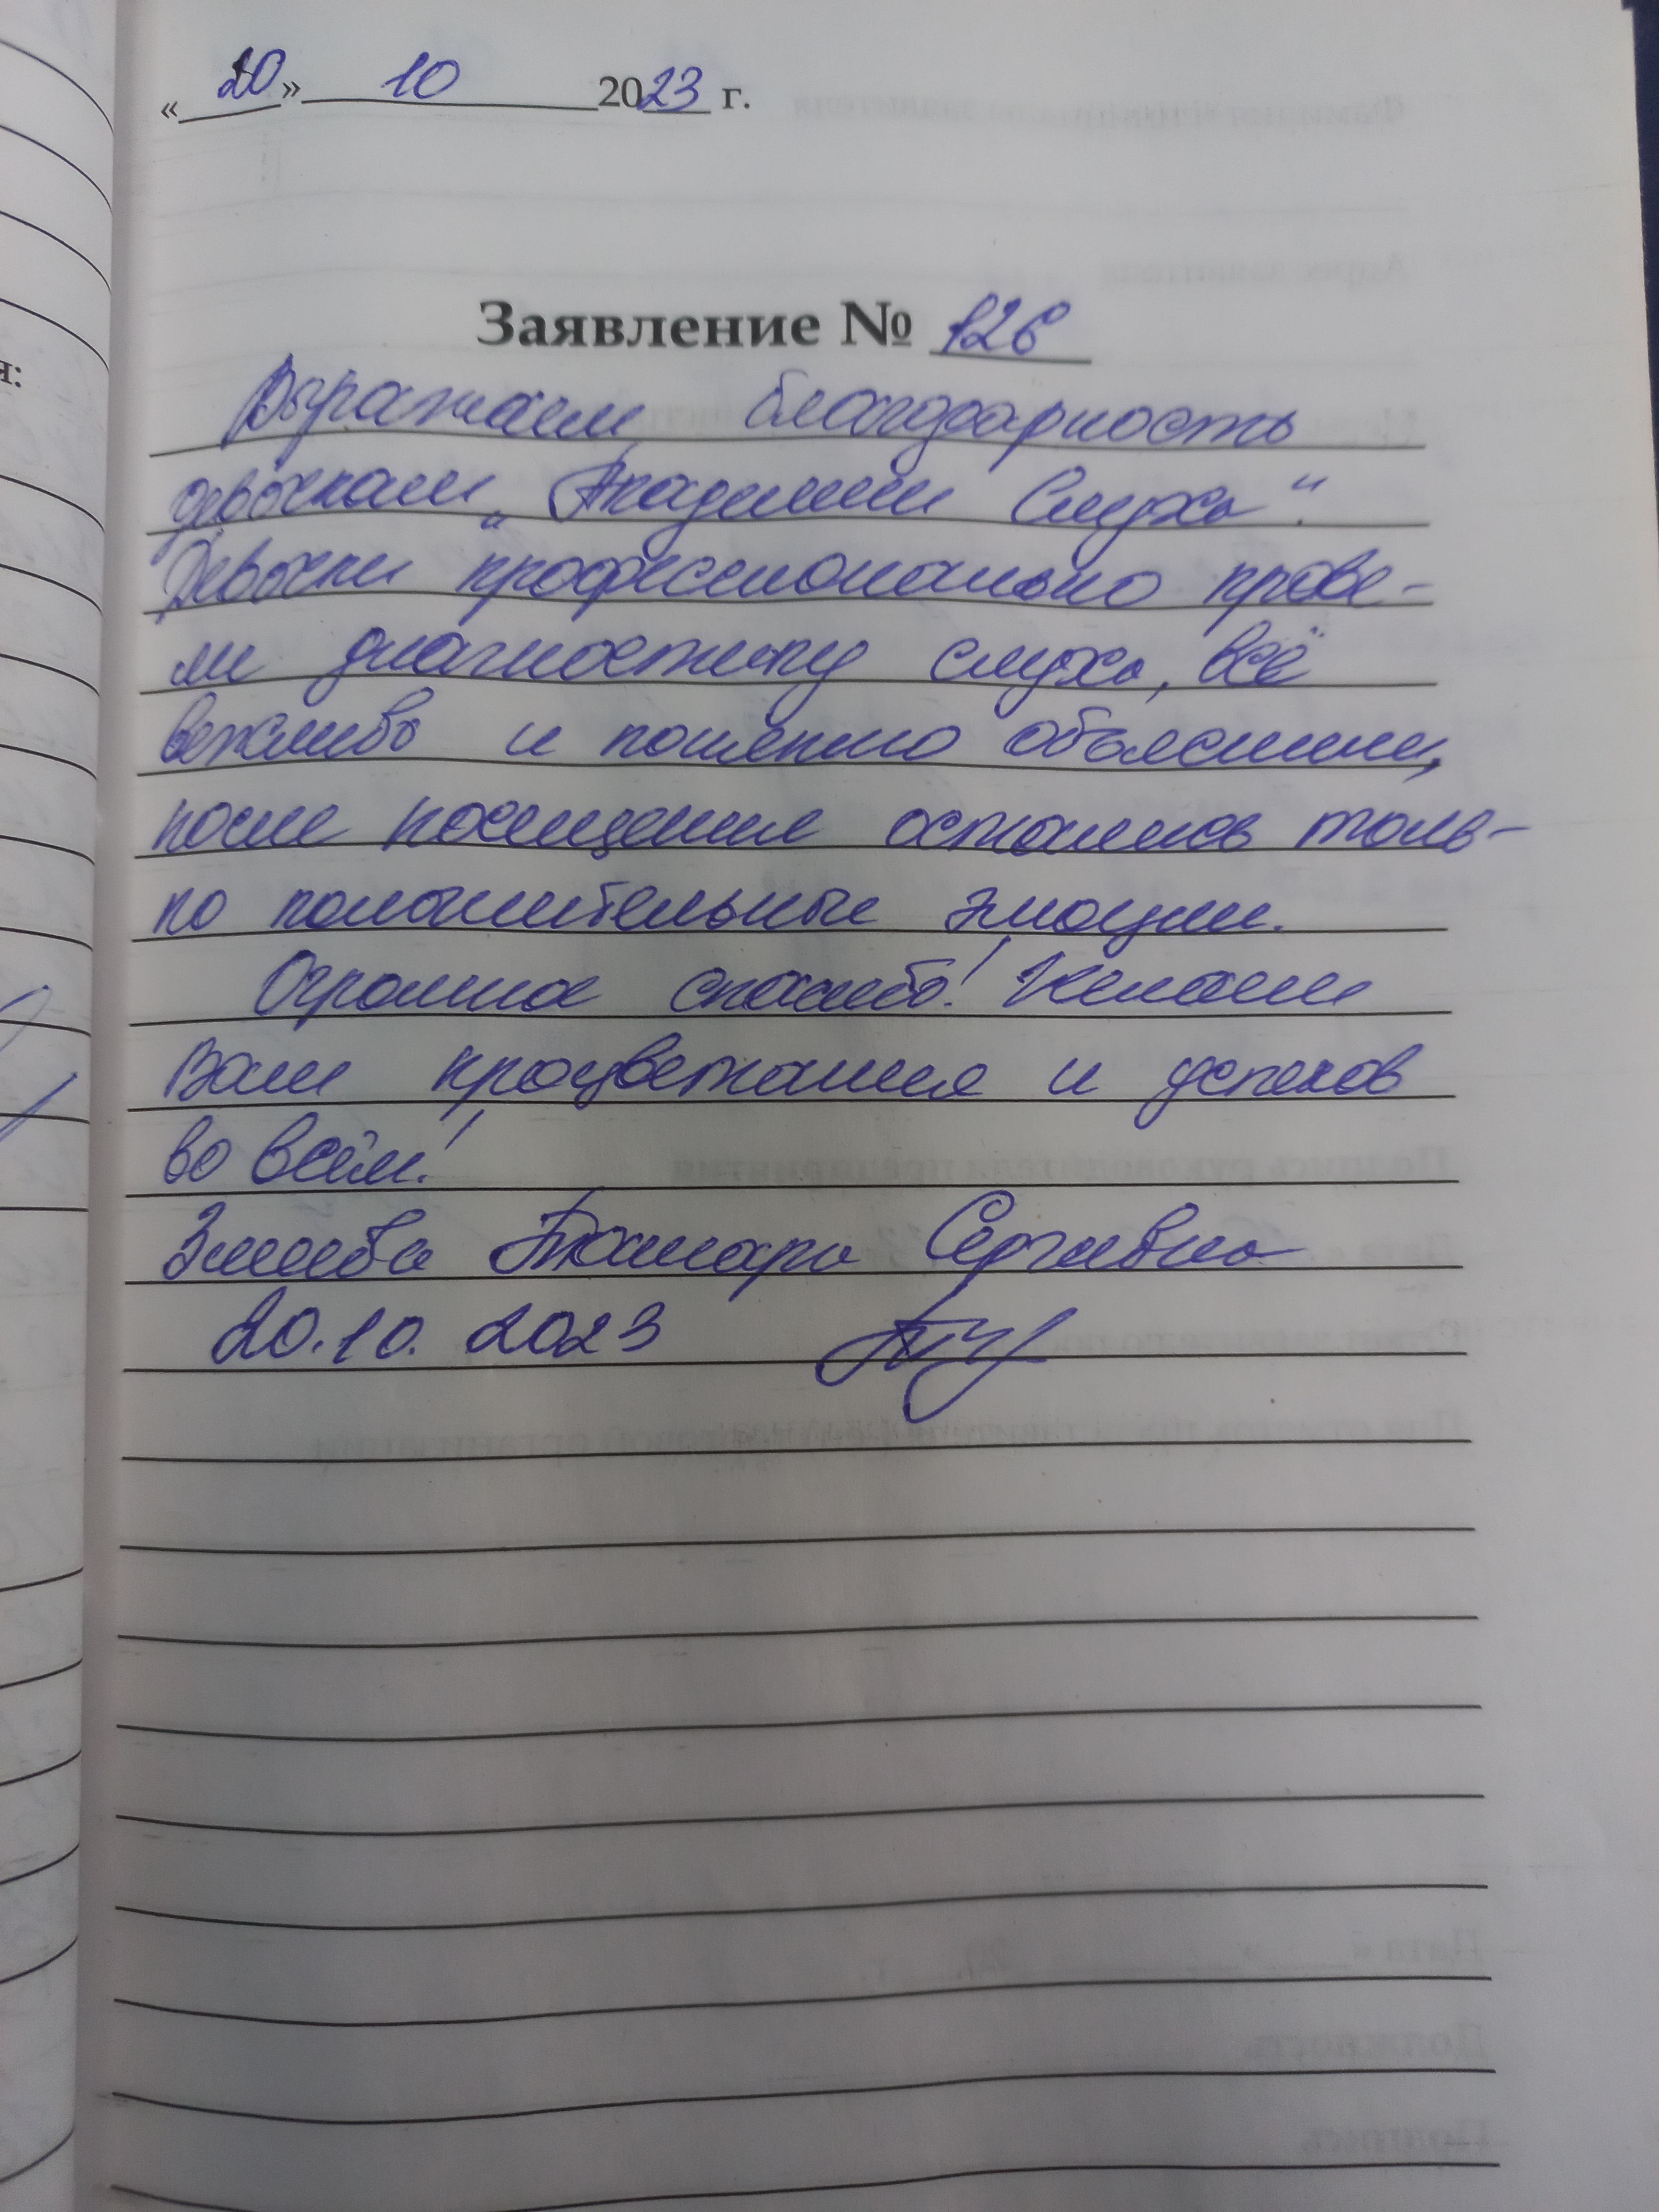 «20» 10 2023 г.
Заявление № 126
Выражаем благодарность
девочкам „Академии Слуха“.
Девочки профессионально прове-
ли диагностику слуха, всё
вежливо и понятно объяснили,
после посещения остались толь-
ко положительные эмоции.
Огромное спасибо! Желаем
Вам процветания и успехов
во всём!
Тамара Сергеевна
20.10.2023